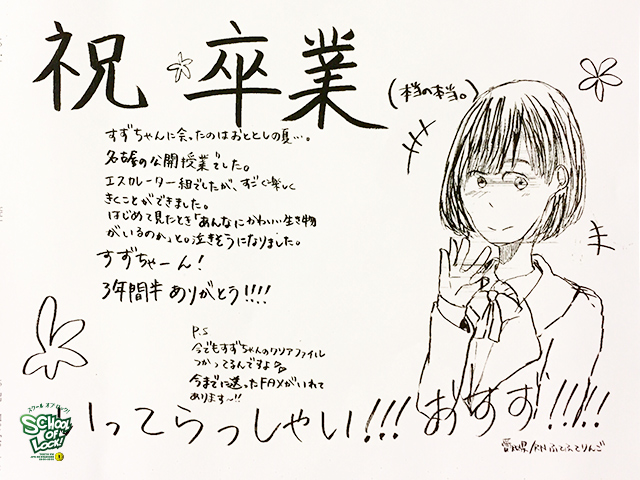 祝 卒業
(本当の本当。)
すずちゃんに会ったのはおととしの夏…。
名古屋の公開授業でした。
エスカレーター組でしたが、すごく楽しく
きくことができました。
はじめて見たとき「あんなにかわいい生き物
がいるのか」と。泣きそうになりました。
すずちゃーん!
3年間半ありがとう!!!!
P.S
今でもすずちゃんのクリアファイル
つかってるんですよ
今までに送ったFAXがいれて
あります〜!!
いってらっしゃい!!! おすず!!!!
/RN ふてふてりんご
スクール オブ ロック!
SCHOOL
OF
LOCK!